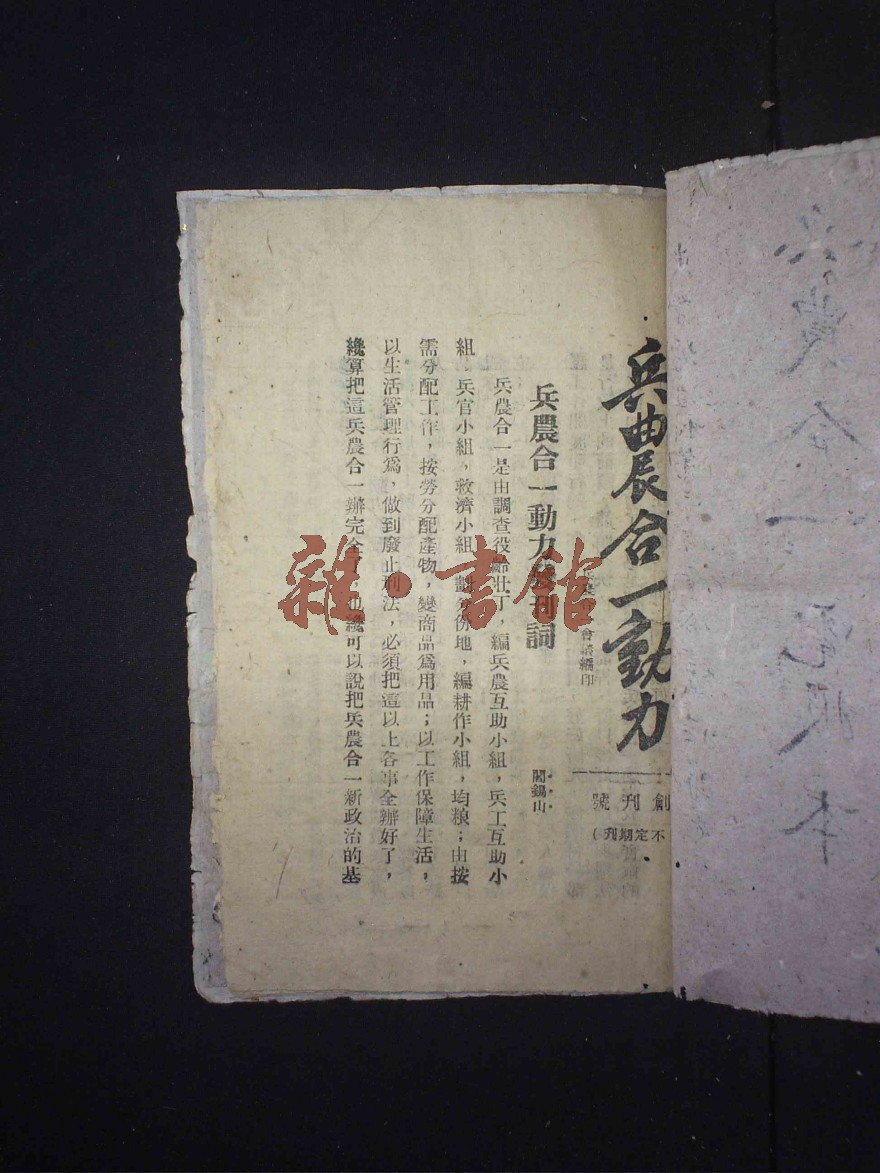 兵農合一動力
創刊號
(不定期刊)
會議編印
兵農合一動力發刊詞
閻錫山
兵農合一是由調查役齡壯丁，編兵農互助小組，兵工互助小
組，兵官小組，救濟小組，劃分份地，編耕作小組，均粮；由按
需分配工作，按勞分配產物，變商品爲用品；以工作保障生活，
以生活管理行爲，做到廢止刑法，必須把這以上各事全辦好了，
纔算把這兵農合一辦完全了，也纔可以說把兵農合一新政治的基
雜·書館